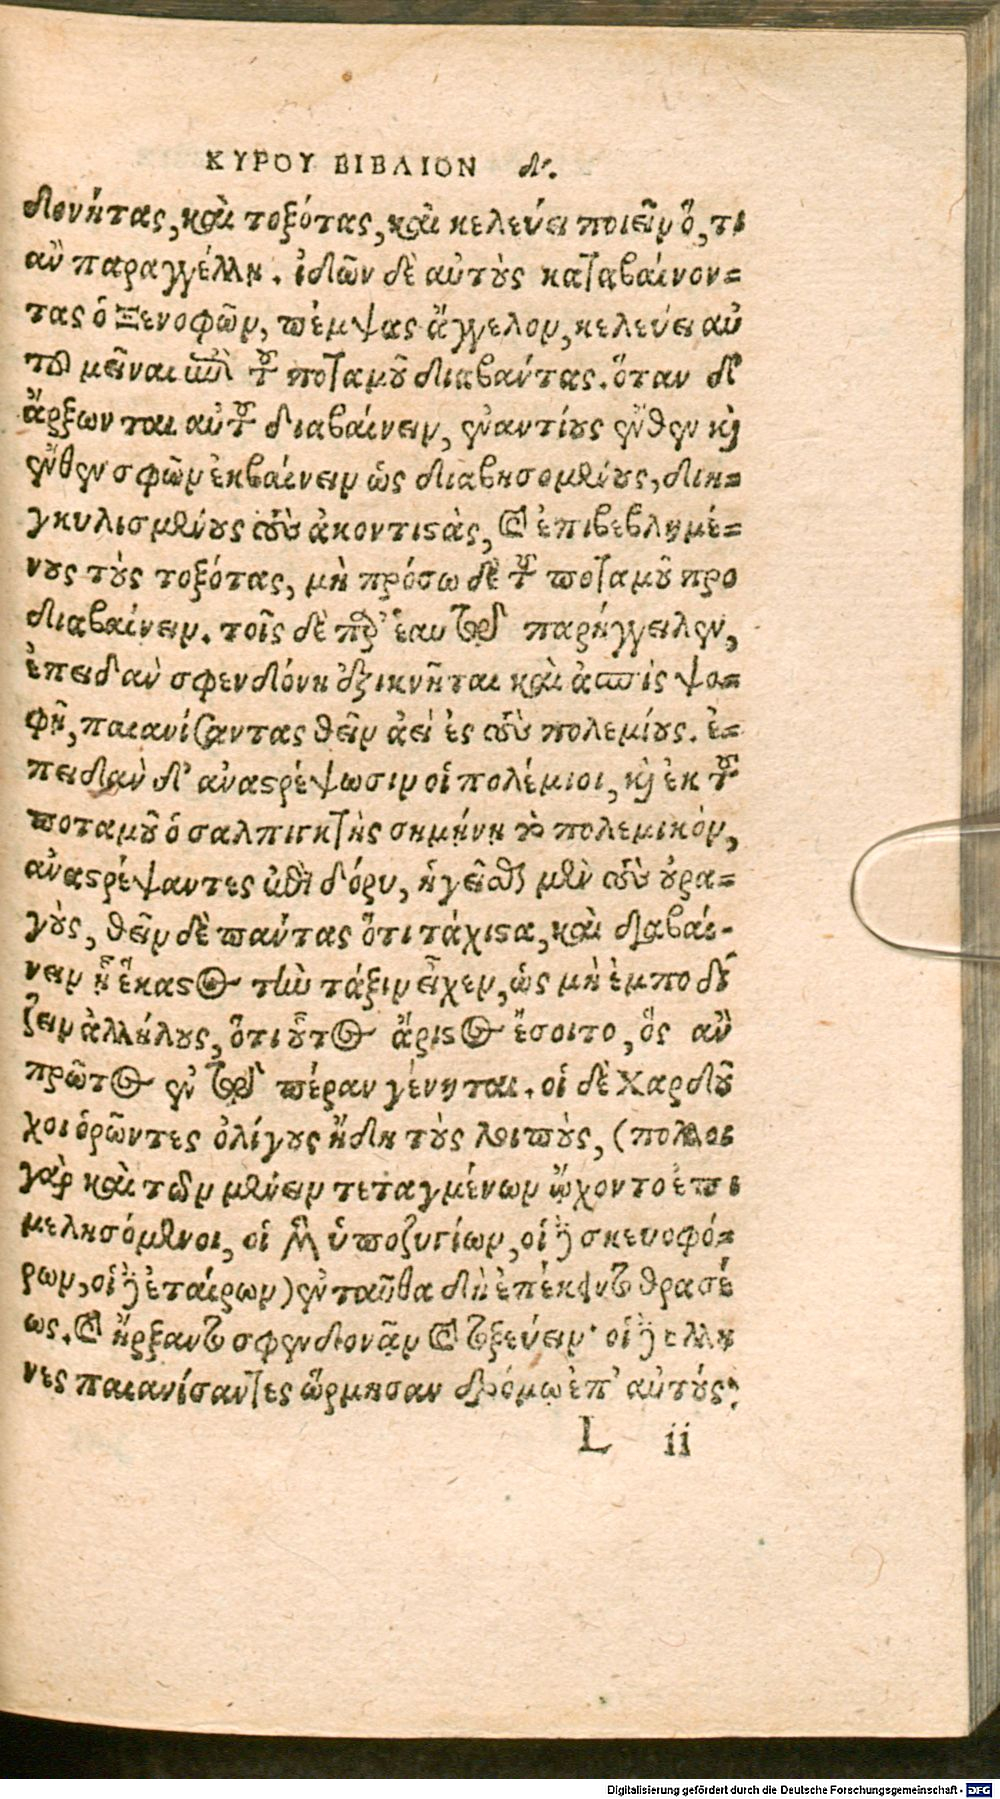 ΚΥΡΟΥ ΒΙΒΛΙΟΝ δ'.
δονήτας, καὶ τοξότας, καὶ κελεύει ποιεῖν ὅ, τι
ἂν παραγγέλλῃ. ἰδὼν δὲ αὐτοὺς καταβαίνον=
τας ὁ Ξενοφῶν, πέμψας ἄγγελον, κελεύει αὐ
τοῦ μεῖναι ἐπὶ τοῦ ποταμοῦ διαβάντας. ὅταν δ'
ἄρξωνται αὐτοὶ διαβαίνειν, ἐναντίους ἔνθεν καὶ
ἔνθεν σφῶν ἐκβαίνειν ὡς διαβησομένους, διη=
γκυλισμένους τοὺς ἀκοντιστὰς, καὶ ἐπιβεβλημέ=
νους τοὺς τοξότας, μὴ πρόσω δὲ τοῦ ποταμοῦ προ
διαβαίνειν. τοῖς δὲ παρ' ἑαυτοῦ παρήγγειλεν,
ἐπειδὰν σφενδόνη ἐξικνῆται καὶ ἀσπὶς ψο=
φῇ, παιανίζαντας θεῖν ἀεὶ ἐς τοὺς πολεμίους. ἐ=
πειδὰν δ' ἀναστρέψωσιν οἱ πολέμιοι, καὶ ἐκ τοῦ
ποταμοῦ ὁ σαλπιγκτὴς σημήνῃ τὸ πολεμικόν,
ἀναστρέψαντες ἐπὶ δόρυ, ἡγεῖσθαι μὲν τοὺς οὐρα=
γοὺς, θεῖν δὲ πάντας ὅτι τάχιστα, καὶ διαβαί-
νειν ᾗ ἕκαστος τὴν τάξιν εἶχεν, ὡς μὴ ἐμποδί
ζειν ἀλλήλους, ὅτι οὗτος ἄριστος ἔσοιτο, ὃς ἂν
πρῶτος ἐν τῷ πέραν γένηται. οἱ δὲ Χαρδοῦ
χοι ὁρῶντες ὀλίγους ἤδη τοὺς λοιποὺς, (πολλοι
γὰρ καὶ τῶν μένειν τεταγμένων ᾤχοντο ἐπι
μελησόμενοι, οἱ μὲν ὑποζυγίων, οἱ δὲ σκευοφό=
ρων, οἱ δὲ ἑταίρων) ἐνταῦθα δὴ ἐπέκειντο θρασέ
ως. καὶ ἤρξαντο σφενδονᾷν καὶ τοξεύειν· οἱ δὲ ελλη
νες παιανίσαντες ὥρμησαν δρόμῳ ἐπ' αὐτούς:
L ii
Digitalisierung gefördert durch die Deutsche Forschungsgemeinschaft - DFG